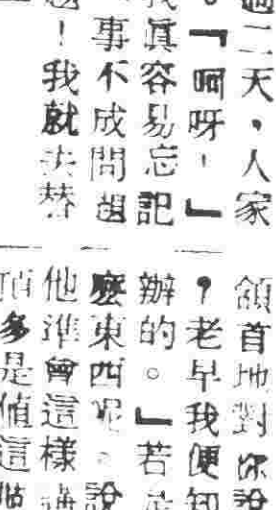 過二天，人家
。『呵呀！』
我眞容易忘記
事不成問題
！我就去替
頷首地對你說
，老早我便知
辦的。』若
麼東西呢。說
他準會這樣講
頂多是值這